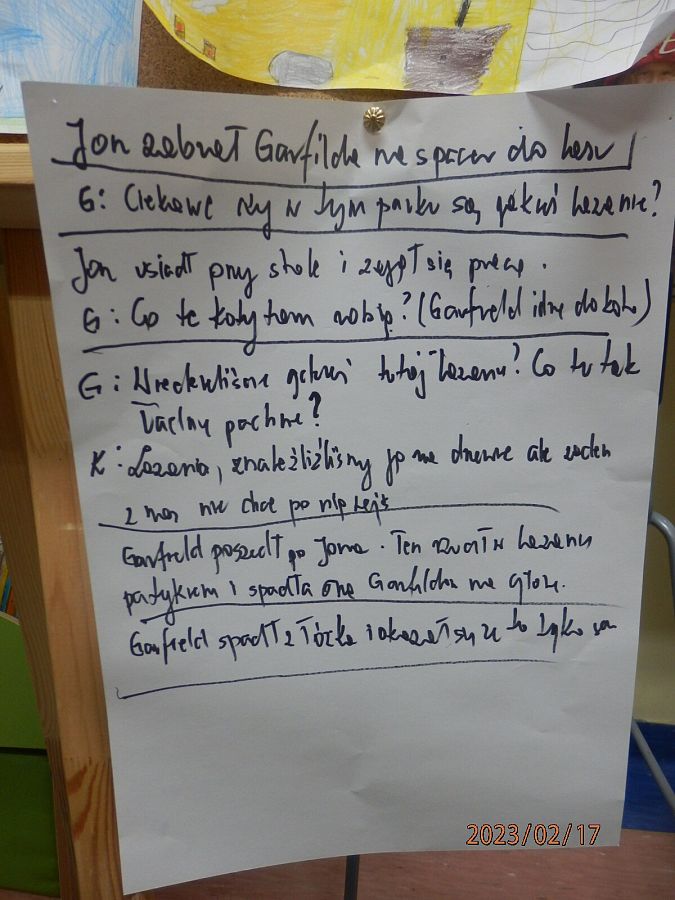 Jon zabrał Garfilda na spacer do lasu
G: Ciekawe czy w tym parku są jakieś lazanie?
Jon usiadł przy stole i zajął się pracą.
G: Co te koty tam robią? (Garfield idzie do kotów)
G: Widzieliście gdzieś tutaj lazanie? Co tu tak
ładnie pachnie?
K: Lazania, znaleźliśmy ją na drzewie ale żaden
z nas nie chce po nią wejść
Garfield poszedł po Jona. Ten rzucił w lazanię
patykiem i spadła ona Garfildowi na głowę.
Garfield spadł z łóżka i okazało się że to tylko sen
2023/02/17